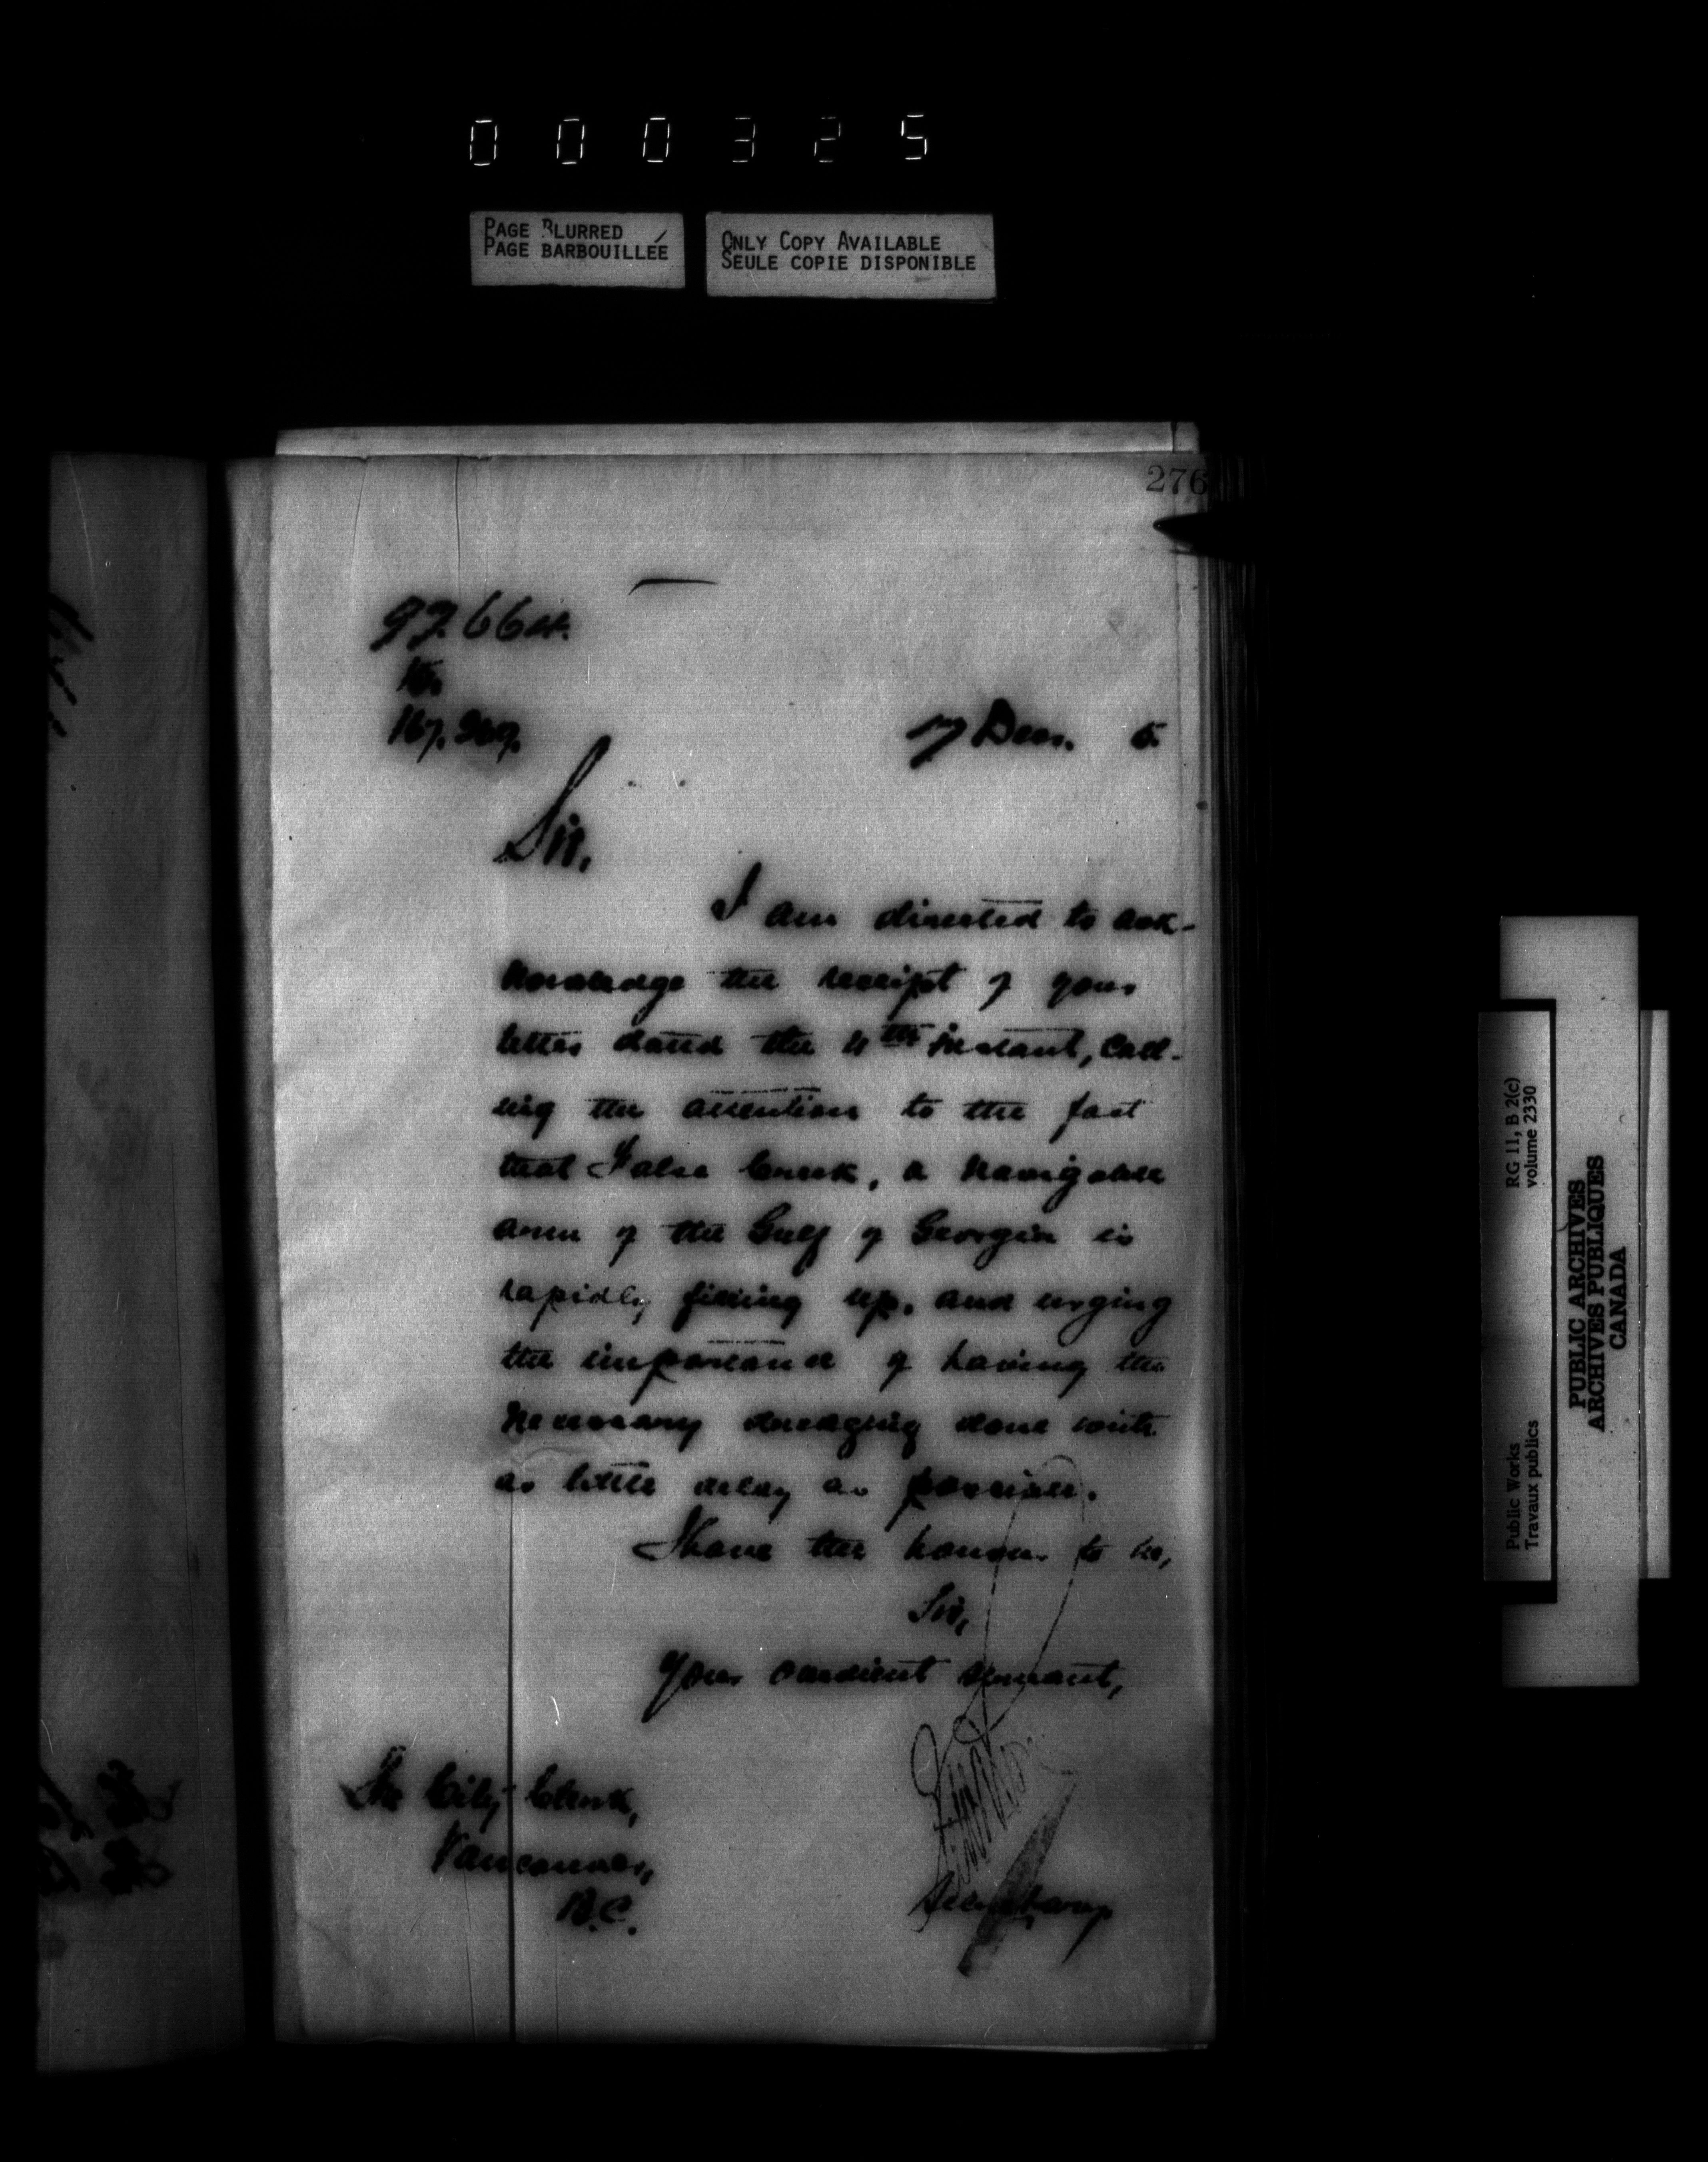 000325
PAGE BLURRED
PAGE BARBOUILLÉE
ONLY COPY AVAILABLE
SEULE COPIE DISPONIBLE
276
Dec. 5
Sir,
I am directed to ack-
nowledge the receipt of your
letter dated the instant, call-
ing the attention to the fact
that False Creek, a navigable
arm of the Gulf of Georgia is
rapidly filling up, and urging
the importance of having the
necessary dredging done with
as little delay as possible.
I have the honour to be,
Sir,
Your obedient servant,
The City Clerk,
Vancouver,
B.C.
Secretary
Public Works
Travaux publics
RG 11, B 2(c)
volume 2330
PUBLIC ARCHIVES
ARCHIVES PUBLIQUES
CANADA